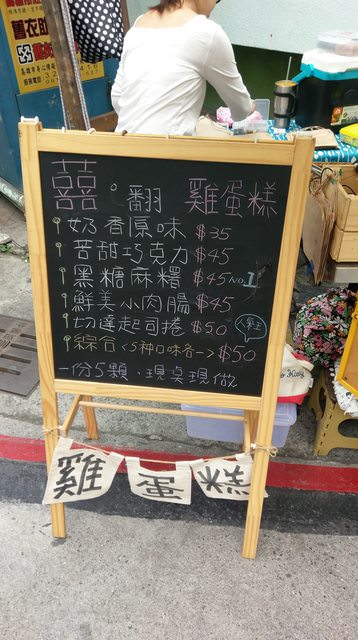 舊衣
囍。翻 雞蛋糕
奶香原味 $35
苦甜巧克力 $45
黑糖麻糬 $45 NO.1
鮮美小肉腸 $45
切達起司捲 $50 人氣王
綜合<5種口味各一> $50
一份5顆、現點現做
雞蛋糕